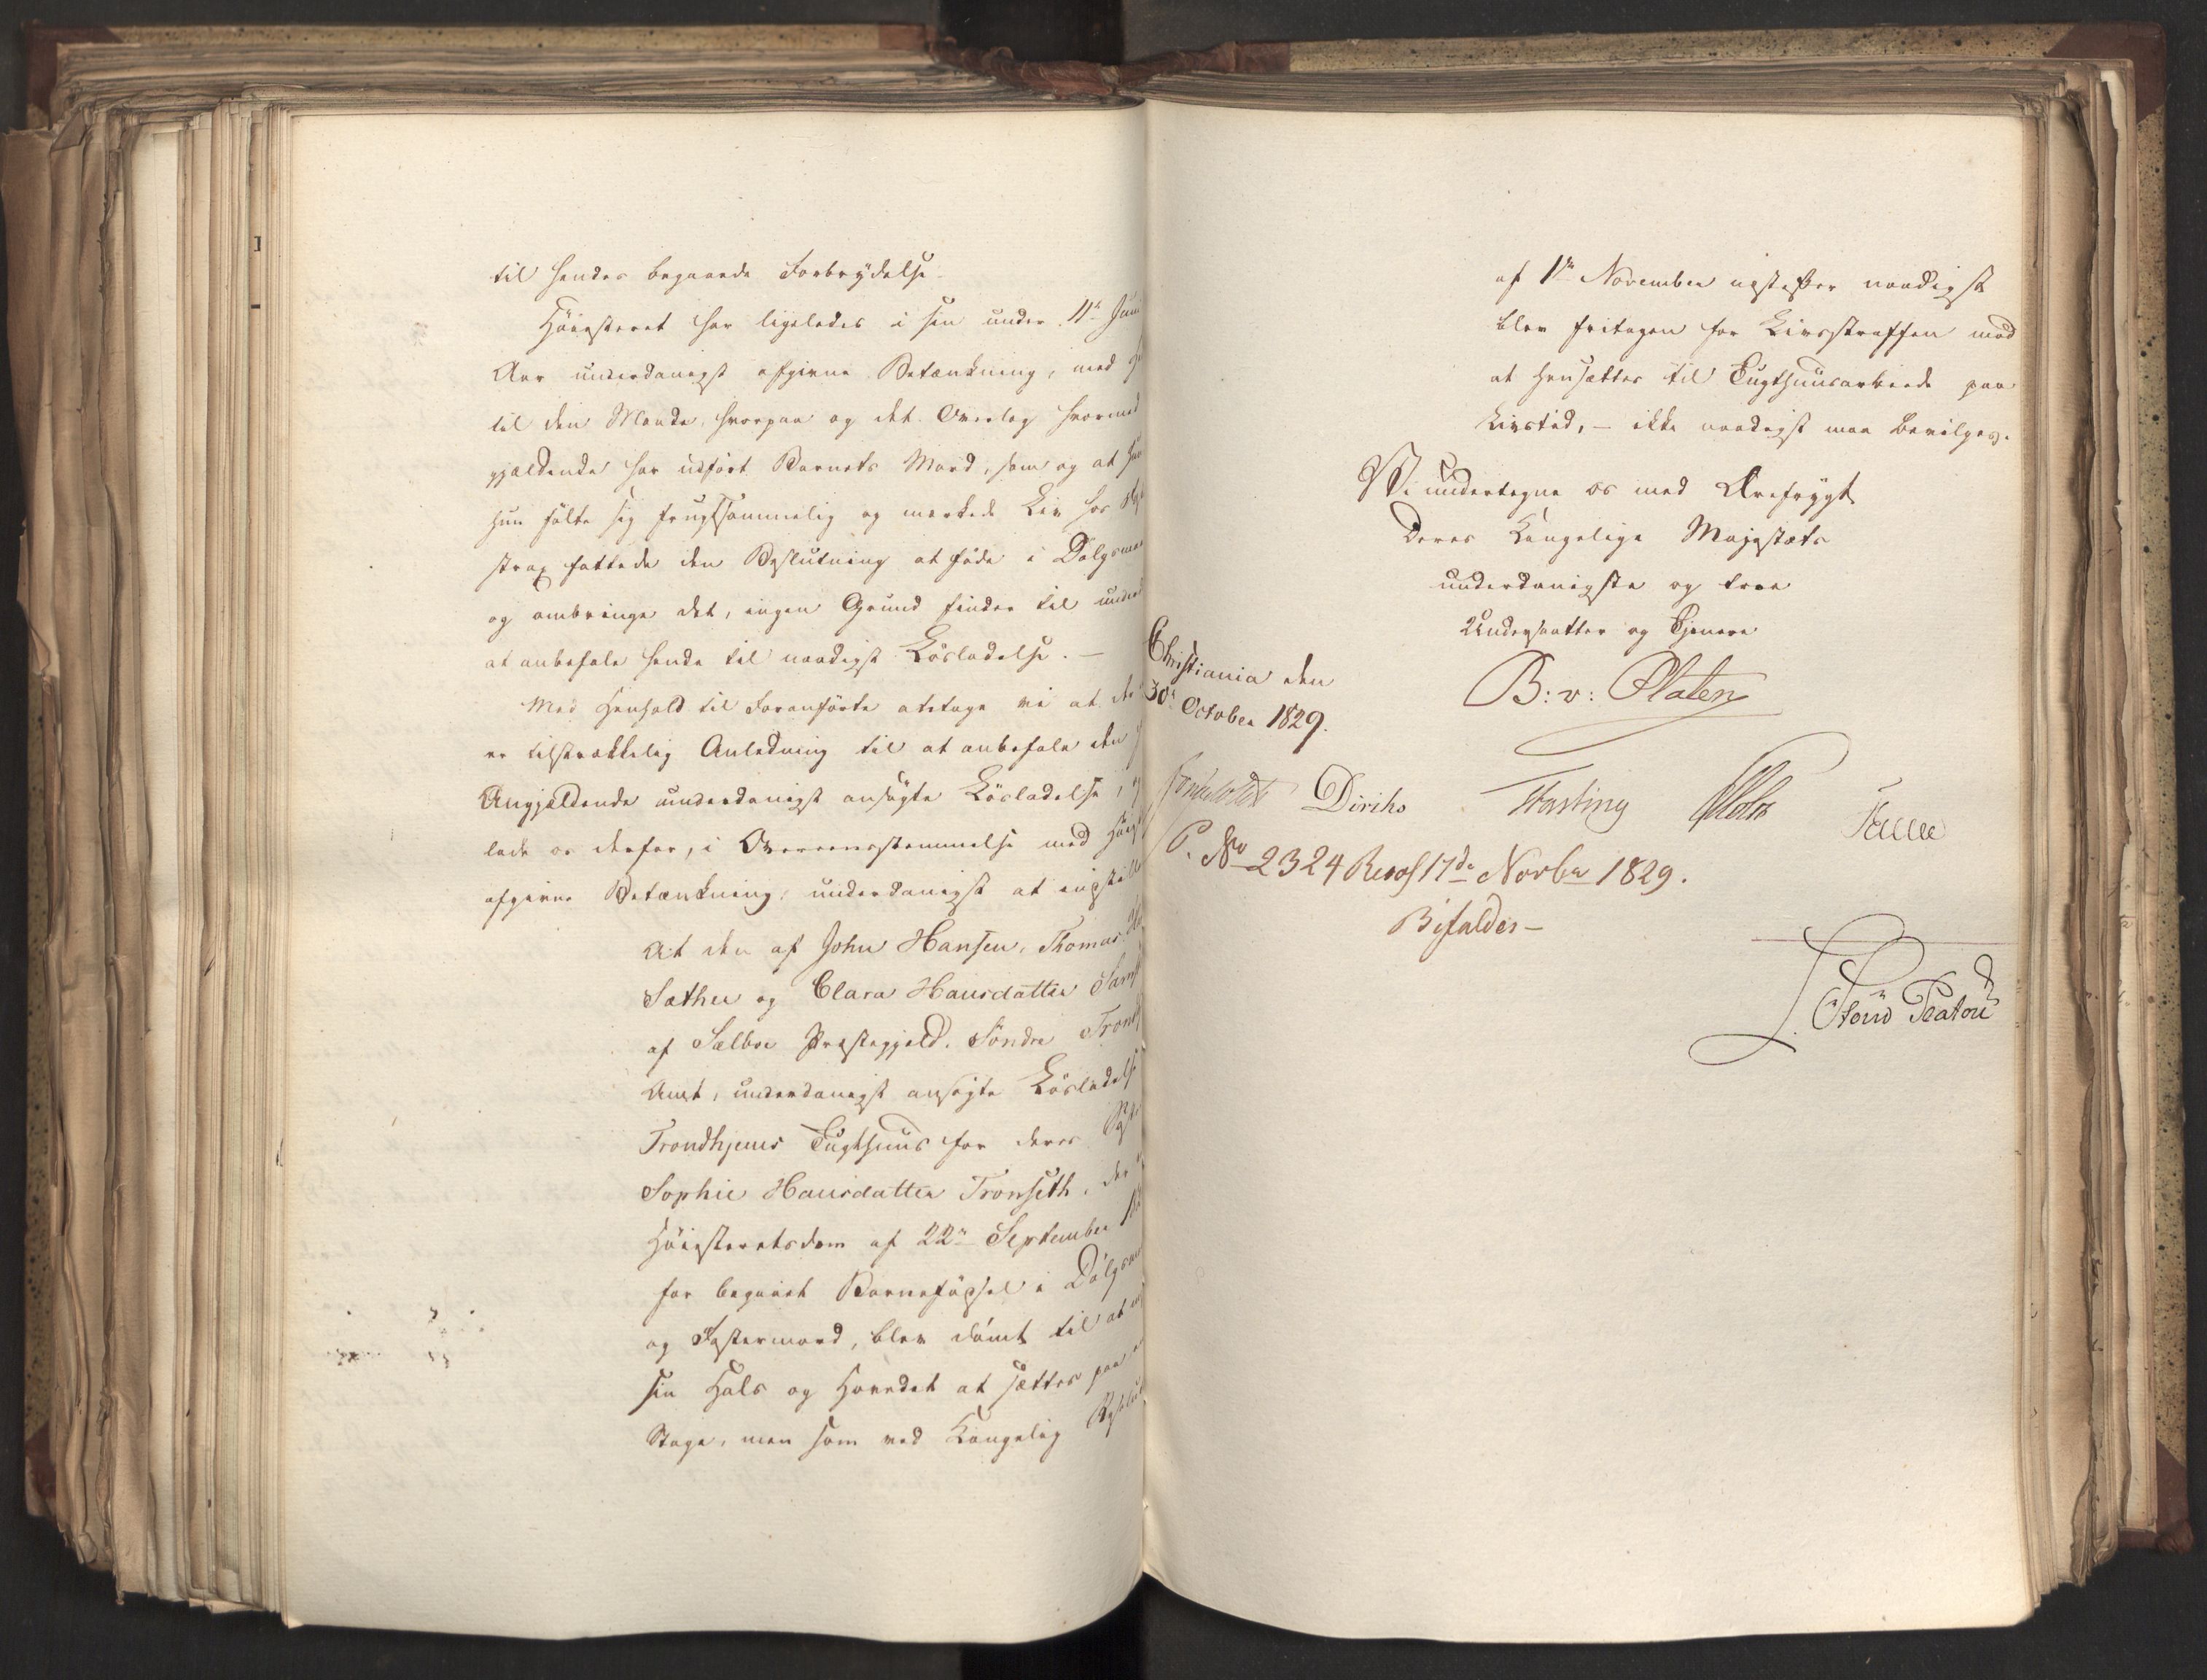 til hendes begaaede Forbrydelse.
Höiesteret har ligeledes i sin under 11te Juni
Aar underdanigst afgivne Betænkning, med
til den Maade, hvorpaa og det Overlæg hvormed
gjældende har udført Barnets Mord, som og at
hun følte sig frugtsommelig og mærkede Liv hos
strax fattede den Beslutning at föde i Dølgsmaa
og ombringe det, ingen Grund finder til underd
at anbefale hende til naadigst Lösladelse. —
Med Henhold til Foranførte antage vi at der
er tilstrækkelig Anledning til at anbefale den
Angjældende underdanigst ansögte Lösladelse,
lade os derfor, i Overeensstemmelse med Höies
afgivne Betænkning, underdanigst at indstille
At den af John Hansen, Thomas
Sæther og Clara Hansdatter
af Sælboe Præstegjeld, Söndre Trondh
Amt, underdanigst ansögte Lösladelse
Trondhjems Tugthuus for deres
Sophie Hansdatter Tronseth, der
Höiesteretsdom af 22de September
for begaaet Barnefödsel i Dølgsmaa
og Fostermord, blev dömt til at
sin Hals og Hovedet at sættes paa
Stage, men som ved Kongelig
af 1ste November næstefter naadigst
blev fritagen for Livsstraffen mod
at hensættes til Tugthuusarbeide paa
Livstid, — ikke naadigst maa bevilges.
Vi undertegne os med Ærefrygt
Deres Kongelige Majestæts
underdanigste og troe
Undersaatter og Tjenere
Christiania den
30te October 1829.
B: v: Platen
Diriks Fasting
P. No 2324 Resol 17de Novbr 1829.
Bifaldes —